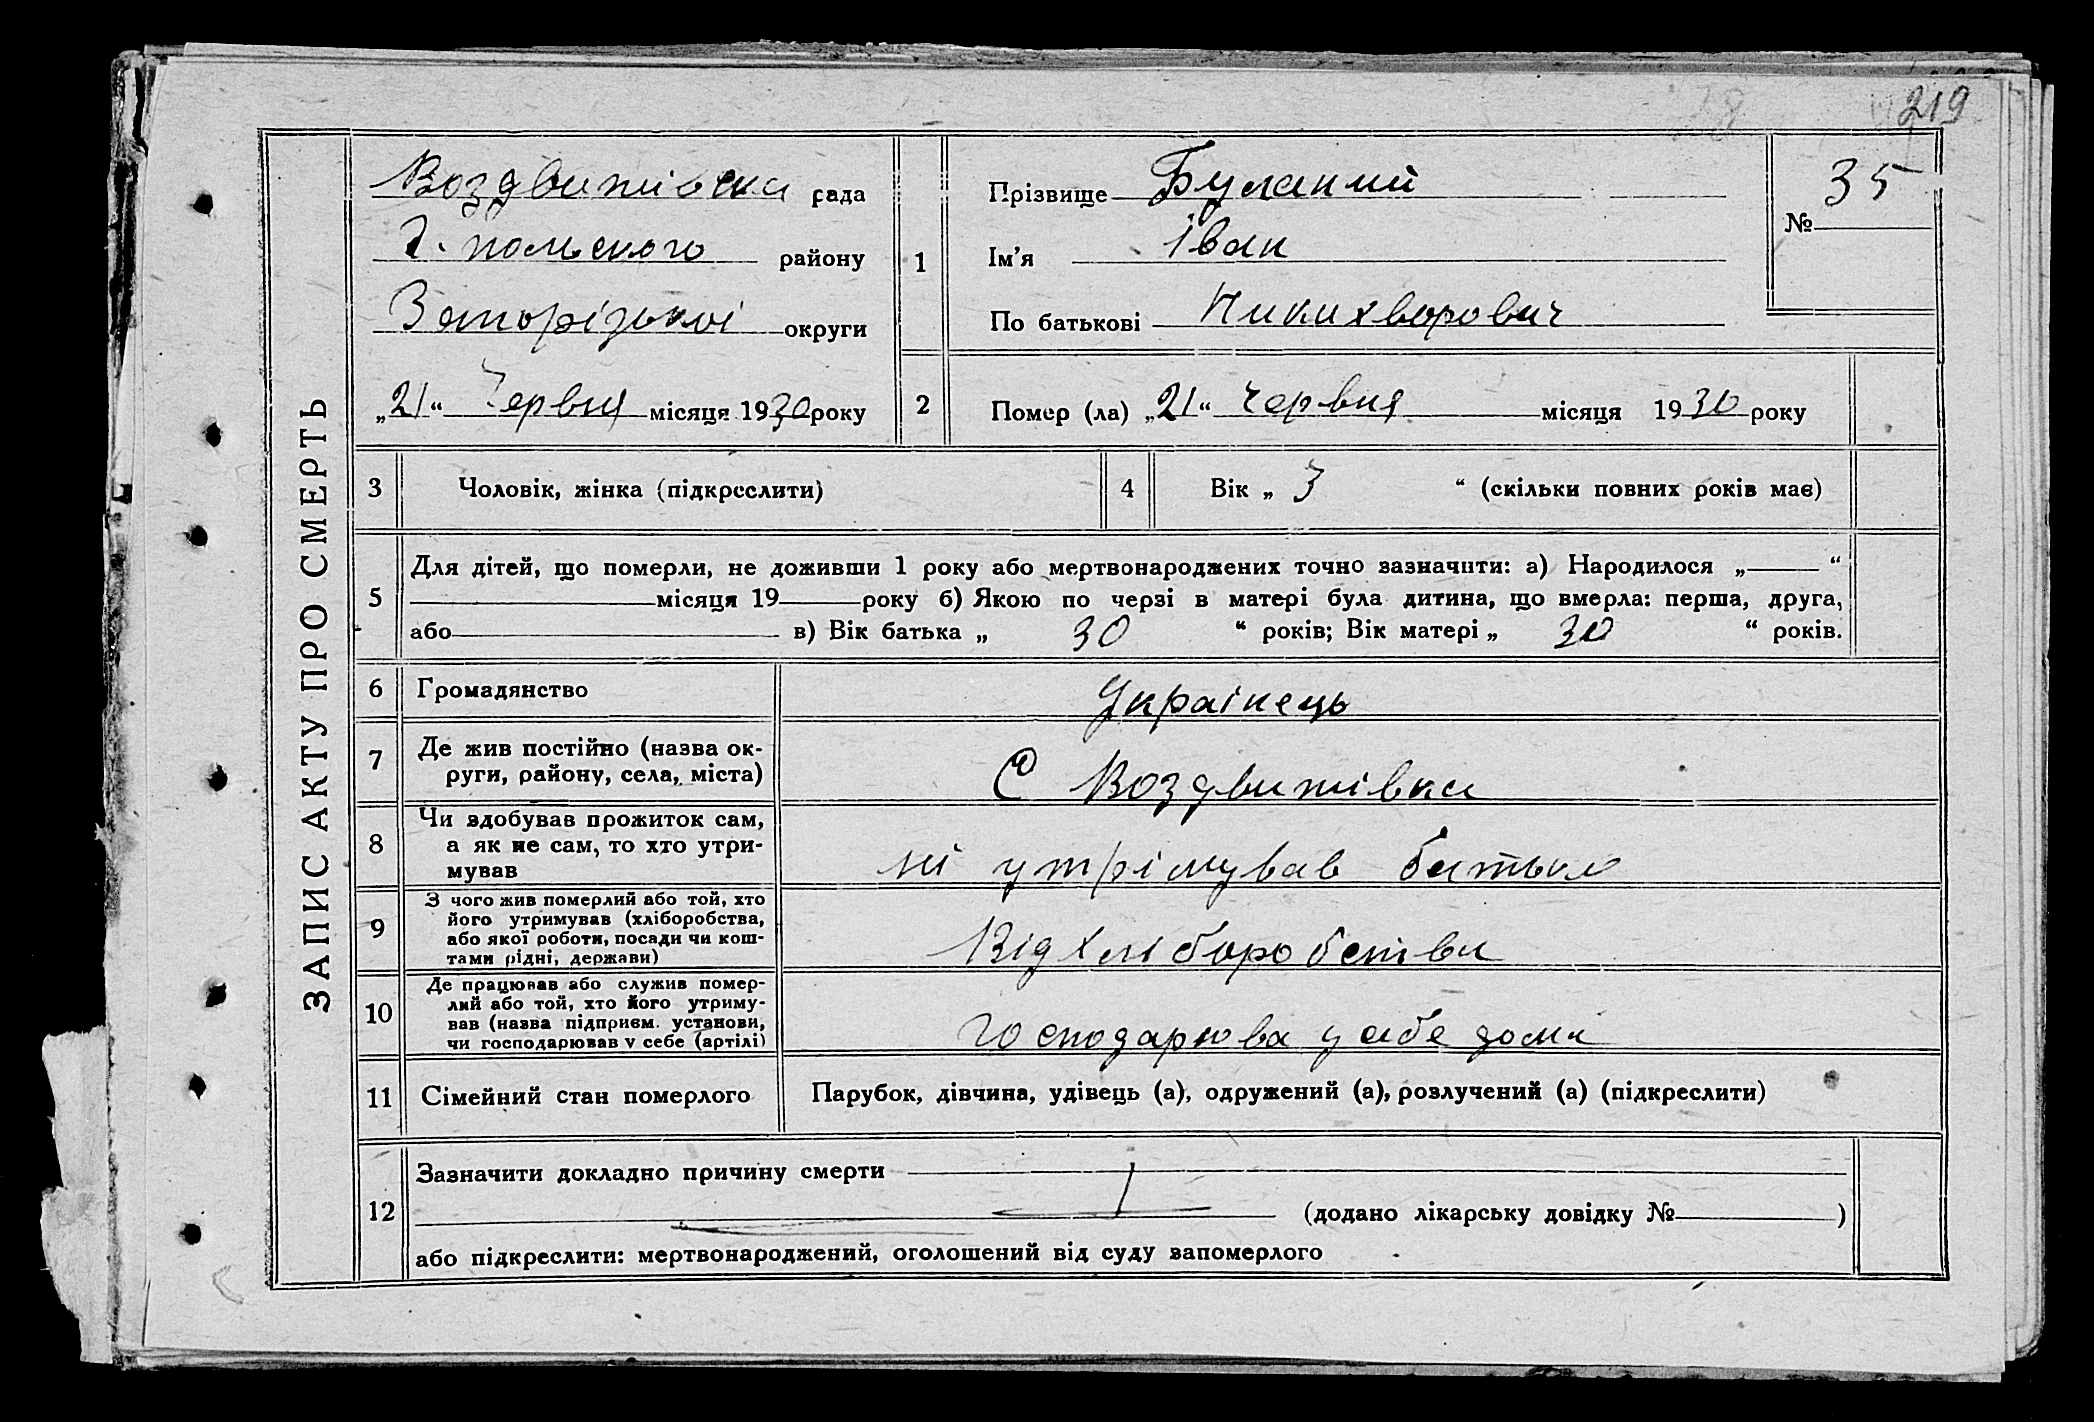 219
ЗАПИС АКТУ ПРО СМЕРТЬ
Воздвижівська рада
Г. польского району
Запорізької округи
„21“ Червня місяця 1930 року
1
Прізвище Буланий
Ім'я Іван
По батькові Никихворович
№ 35
2
Помер (ла) „21“ Червня місяця 1930 року
3 Чоловік, жінка (підкреслити)
4 Вік „ 3 “ (скільки повних років має)
5
Для дітей, що померли, не доживши 1 року або мертвонароджених точно зазначити: а) Народилося „ “
місяця 19 року б) Якою по черзі в матері була дитина, що вмерла: перша, друга,
або в) Вік батька „ 30 “ років; Вік матері „ 30 “ років.
6 Громадянство Українець
7 Де жив постійно (назва ок-
руги, району, села, міста) С Воздвижівка
8 Чи здобував прожиток сам,
а як не сам, то хто утри-
мував ні утрімував батько
9 З чого жив померлий або той, хто
його утримував (хліборобства,
або якої роботи, посади чи кош-
тами рідні, держави) Від хліборобства
10 Де працював або служив помер-
лий або той, хто його утриму-
вав (назва підприєм. установи,
чи господарював у себе (артілі) Господарюва у себе дома
11 Сімейний стан померлого Парубок, дівчина, удівець (а), одружений (а), розлучений (а) (підкреслити)
12
Зазначити докладно причину смерти
(додано лікарську довідку № )
або підкреслити: мертвонароджений, оголошений від суду запомерлого